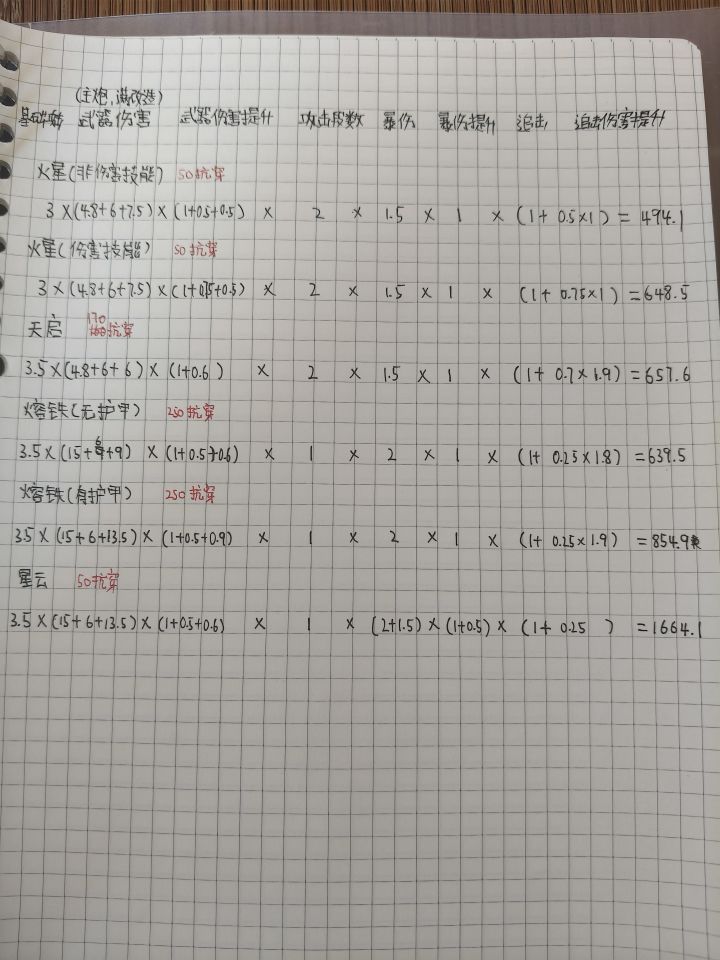 (主炮,满改造)
基础倍率 武器伤害 武器伤害提升 攻击段数 暴伤 暴伤提升 追击 追击伤害提升
火星(非伤害技能) 50抗穿
3×(4.8+6+7.5)×(1+0.5+0.5) × 2 × 1.5 × 1 × (1+0.5×1) = 494.1
火星(伤害技能) 50抗穿
3×(4.8+6+7.5)×(1+0.75+0.5) × 2 × 1.5 × 1 × (1+0.75×1) =648.5
天启 170抗穿
3.5×(4.8+6+6)×(1+0.6) × 2 × 1.5 × 1 × (1+0.7×1.9) =657.6
熔铁(无护甲) 250抗穿
3.5×(15+6+9)×(1+0.5+0.6) × 1 × 2 × 1 × (1+0.25×1.8) =639.5
熔铁(有护甲) 250抗穿
3.5×(15+6+13.5)×(1+0.5+0.9) × 1 × 2 × 1 × (1+0.25×1.9) =854.9
星云 50抗穿
3.5×(15+6+13.5)×(1+0.5+0.6) × 1 × (2+1.5)×(1+0.5)×(1+0.25 ) =1664.1